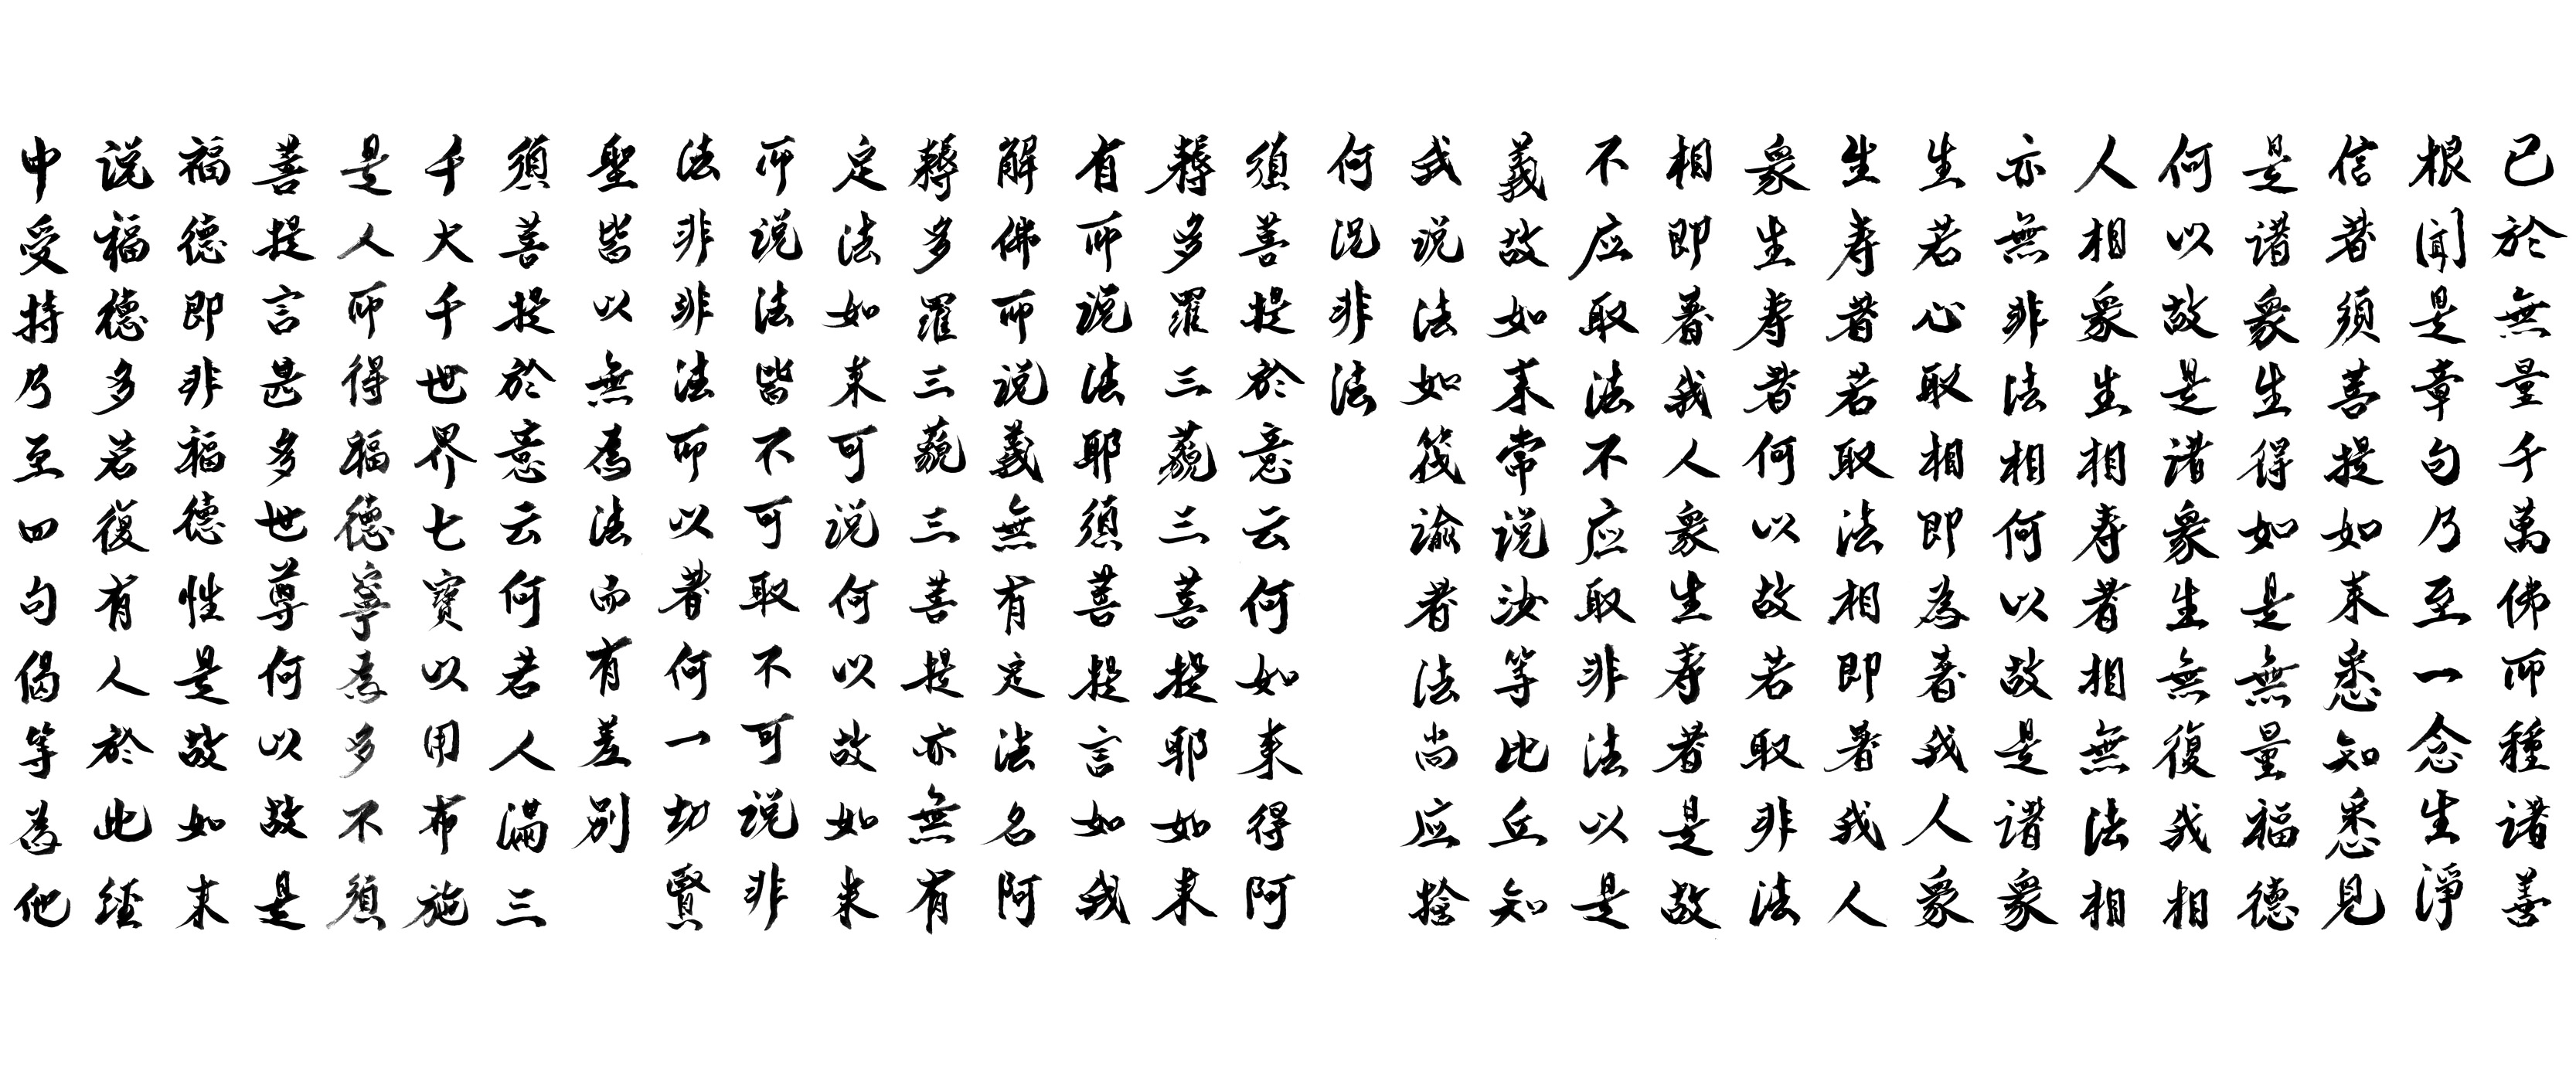 已於無量千萬佛所種诸善
根聞是章句乃至一念生淨
信者須菩提如来悉知悉見
是诸衆生得如是無量福德
何以故是诸衆生無復我相
人相衆生相寿者相無法相
亦無非法相何以故是诸衆
生若心取相即為著我人衆
生寿者若取法相即著我人
衆生寿者何以故若取非法
相即著我人衆生寿者是故
不应取法不应取非法以是
義故如来常说汝等比丘知
我说法如筏喻者法尚应捨
何况非法
須菩提於意云何如来得阿
耨多羅三藐三菩提耶如来
有所说法耶須菩提言如我
解佛所说義無有定法名阿
耨多羅三藐三菩提亦無有
定法如来可说何以故如来
所说法皆不可取不可说非
法非非法所以者何一切賢
聖皆以無為法而有差别
須菩提於意云何若人满三
千大千世界七寶以用布施
是人所得福德寧為多不須
菩提言甚多世尊何以故是
福德即非福德性是故如来
说福德多若復有人於此經
中受持乃至四句偈等為他